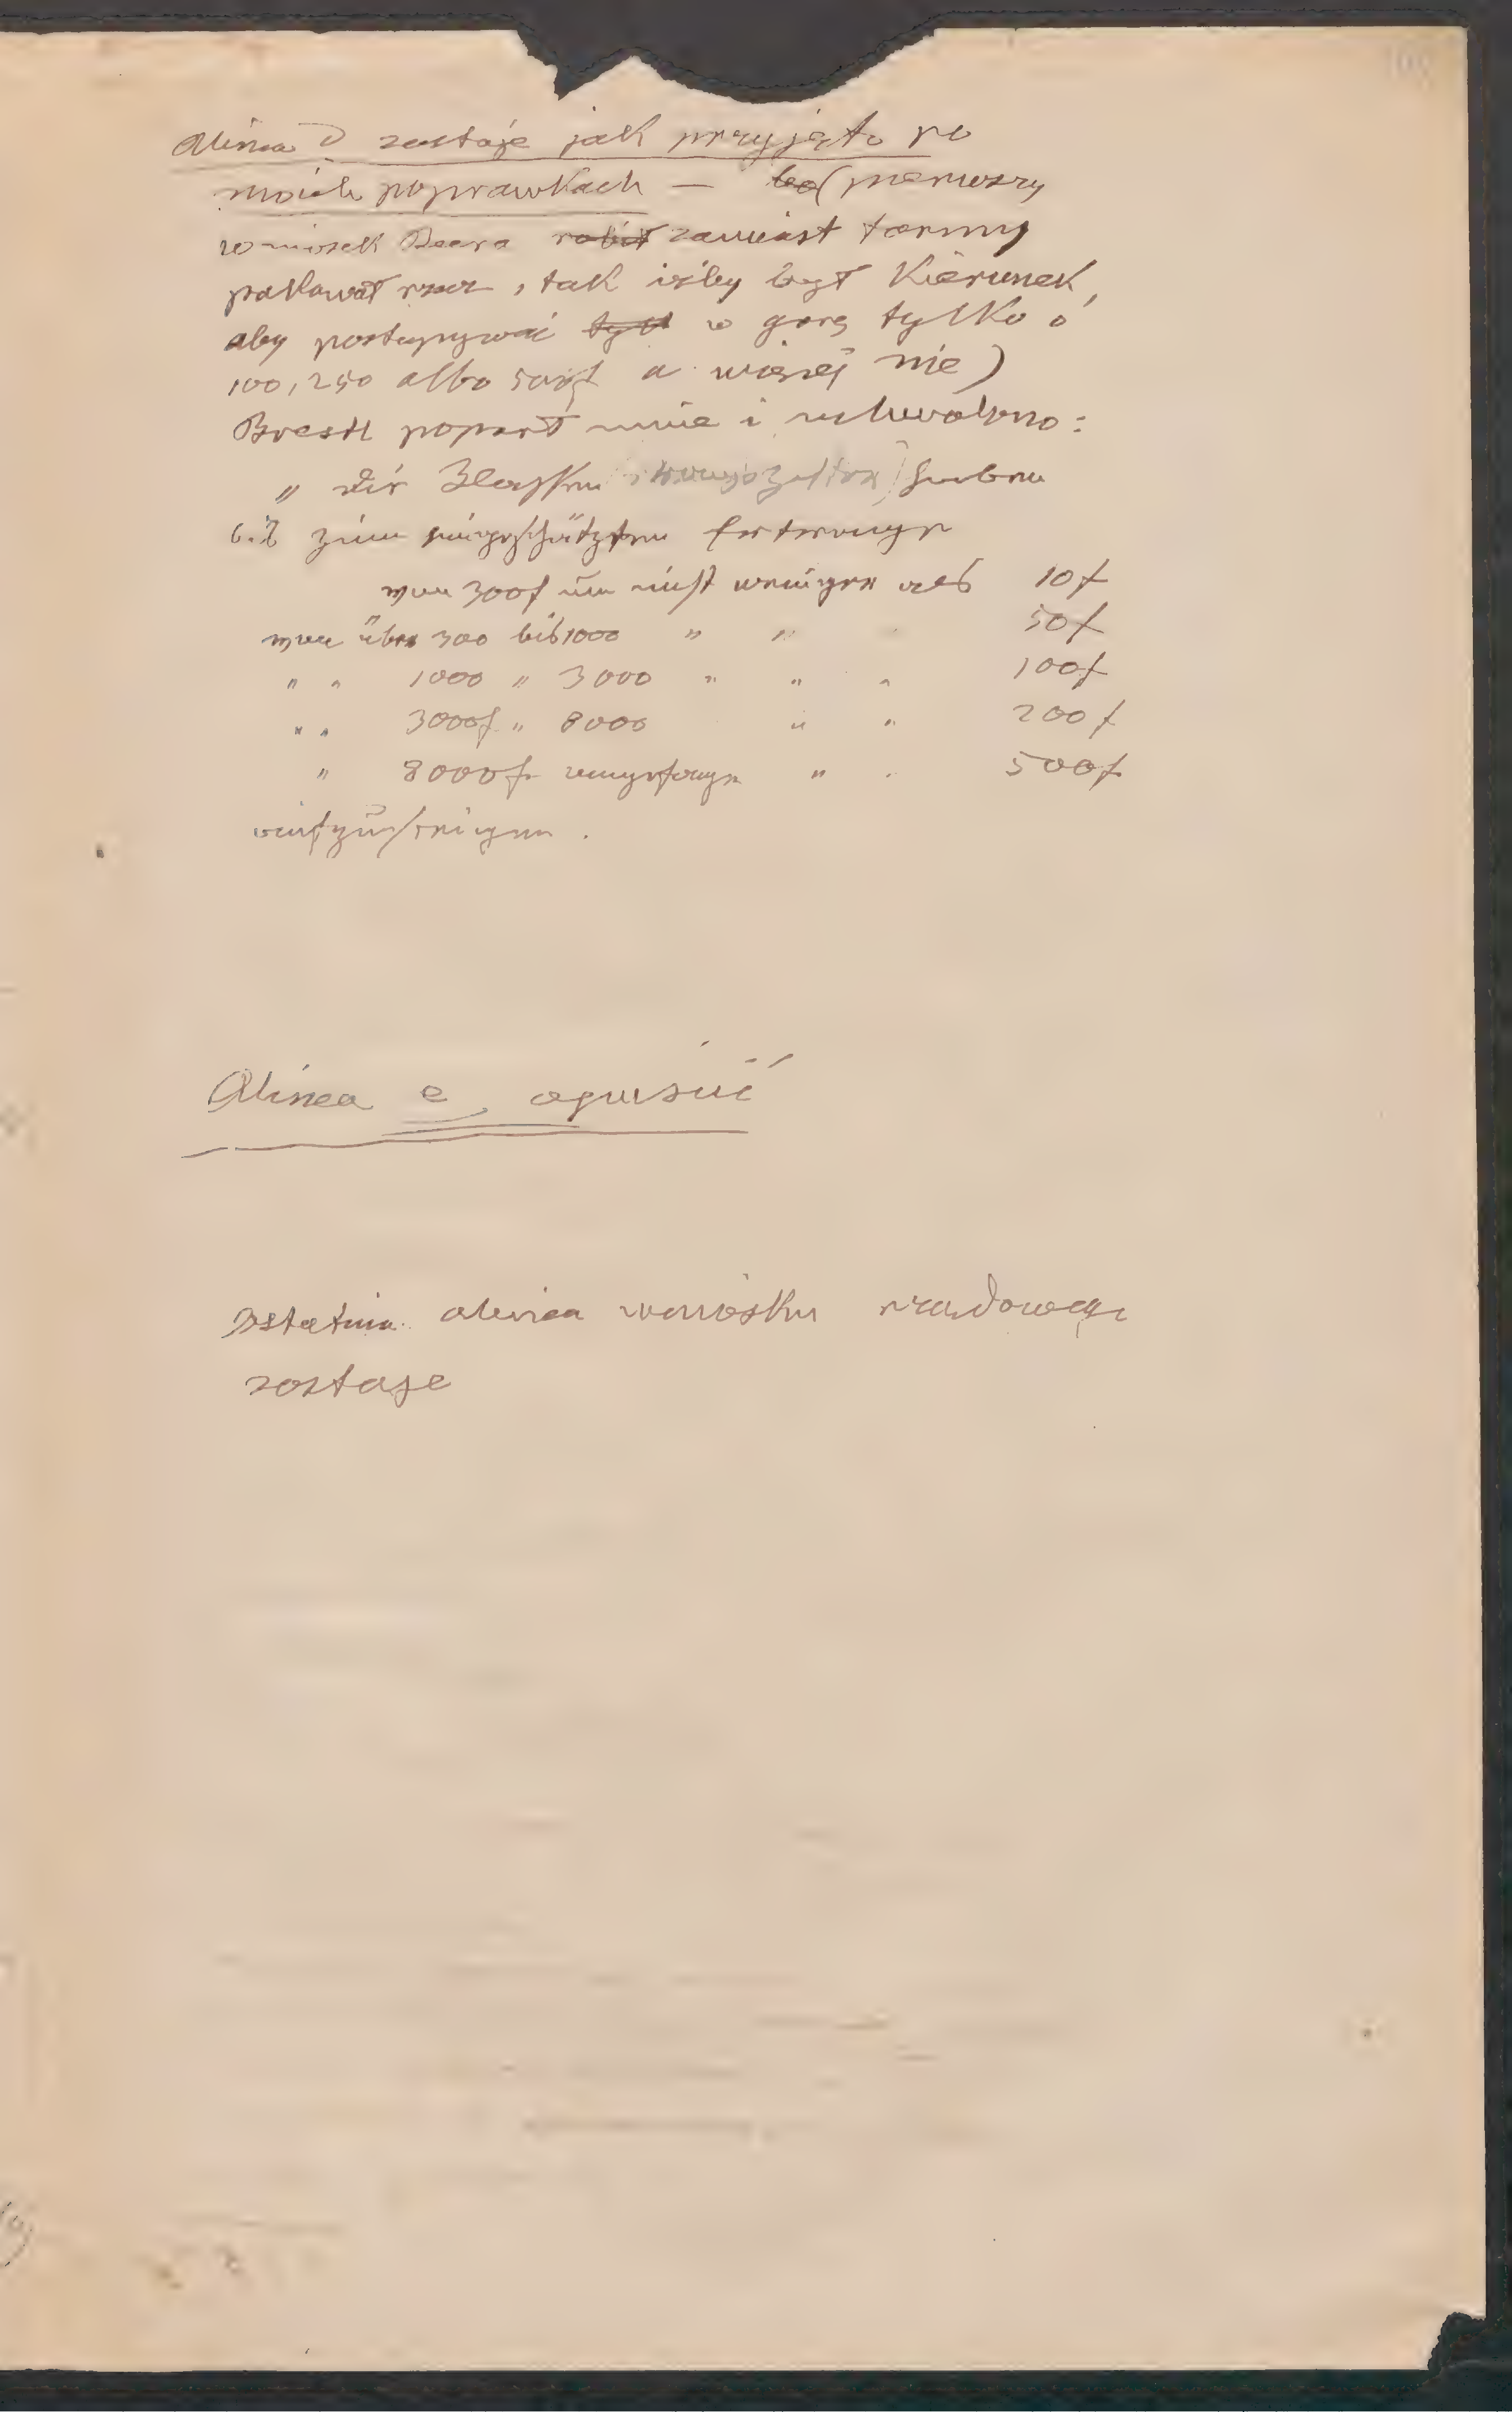 Alinea d zostaje jak przyjęto po
moich poprawkach — ~~bo~~ (pierwszy
wniosek Beera ~~robił~~ zamiast formy
, tak iżby był kierunek,
aby postępywać ~~tył~~ w górę tylko o
100, 250 albo 500f a więcej nie)
Brestl poparł mnie i uchwalono:
„ die haben
bis zum eingeschätzten Ertrage
von 300f um nicht weniger als 10f
von über 300 bis 1000 " " " 50f
" " 1000 " 3000 " " " 100f
" " 3000f " 8000 " " 200f
" 8000f angefangen " " 500f
aufzusteigen.
Alinea e, opuścić
Ostatnia alinea wniosku rządowego
zostaje